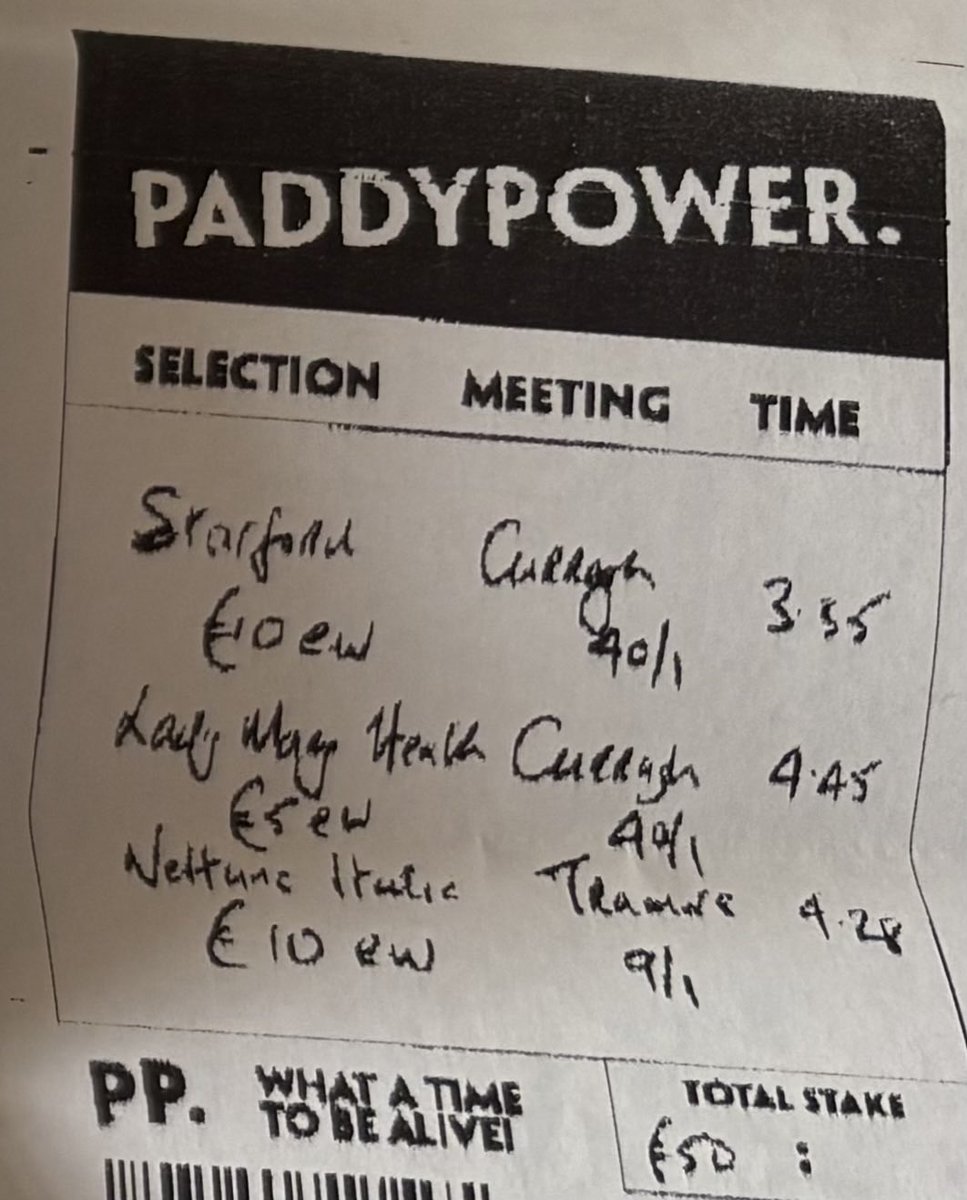 PADDYPOWER.
SELECTION MEETING TIME
Starford Curragh 3.55
€10 ew 40/1
Lady Mary Heath Curragh 4.45
€5 ew 40/1
Nettuno Italic Tramore 4.28
€10 ew 9/1
PP. WHAT A TIME
TO BE ALIVE!
TOTAL STAKE
€50 :